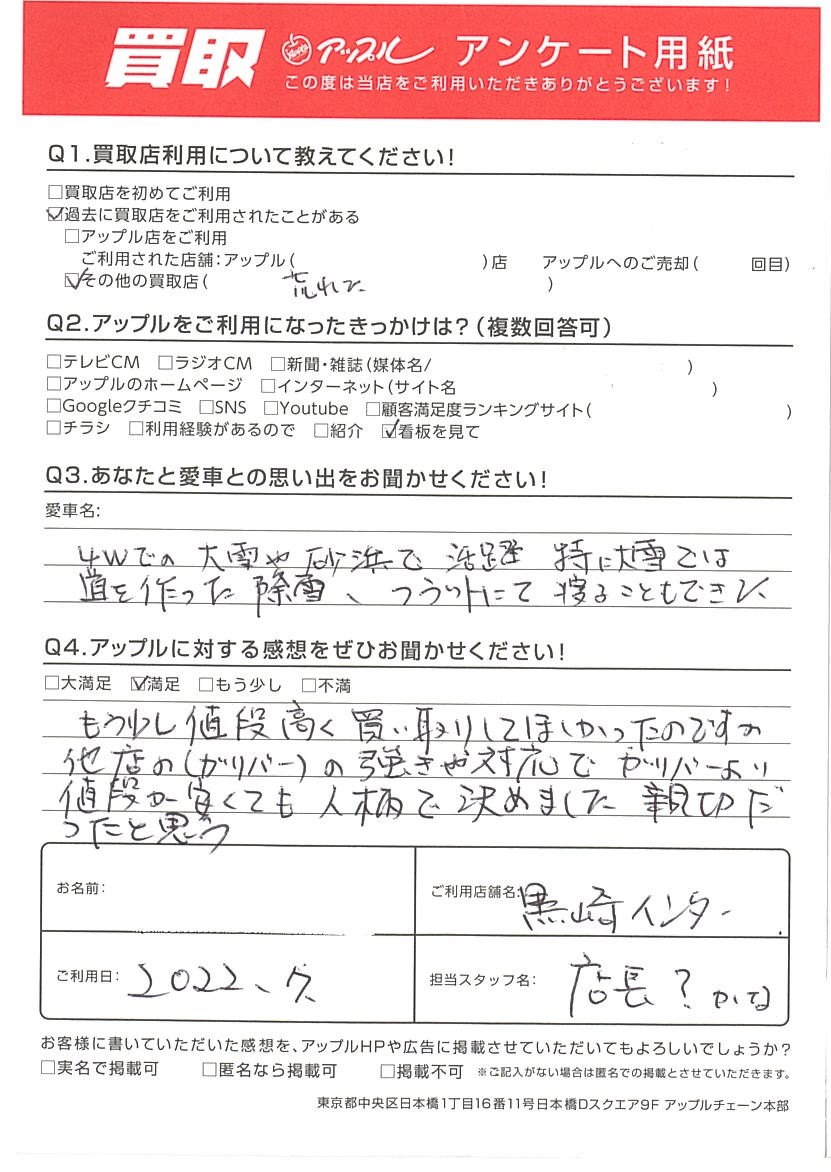 買取 アップル アンケート用紙
この度は当店をご利用いただきありがとうございます!
Q1.買取店利用について教えてください!
□買取店を初めてご利用
☑過去に買取店をご利用されたことがある
□アップル店をご利用
ご利用された店舗:アップル( )店 アップルへのご売却( 回目)
☑その他の買取店( )
Q2.アップルをご利用になったきっかけは?(複数回答可)
□テレビCM □ラジオCM □新聞・雑誌(媒体名/ )
□アップルのホームページ □インターネット(サイト名 )
□Googleクチコミ □SNS □Youtube □顧客満足度ランキングサイト( )
□チラシ □利用経験があるので □紹介 ☑看板を見て
Q3.あなたと愛車との思い出をお聞かせください!
愛車名:
4Wでの 大雪や砂浜で 活躍 特に大雪では
道を作った 除雪、フラットにて 寝ることもできた
Q4.アップルに対する感想をぜひお聞かせください!
□大満足 ☑満足 □もう少し □不満
もう少し値段高く買い取りしてほしかったのですが
他店の(ガリバー)の強きや対応でガリバーより
値段が安くても人柄で決めました 親切だ
ったと思う
お名前:
ご利用店舗名: 黒崎インター
ご利用日: 2022、7、
担当スタッフ名: 店長?
お客様に書いていただいた感想を、アップルHPや広告に掲載させていただいてもよろしいでしょうか?
□実名で掲載可 □匿名なら掲載可 □掲載不可 ※ご記入がない場合は匿名での掲載とさせていただきます。
東京都中央区日本橋1丁目16番11号日本橋Dスクエア9F アップルチェーン本部